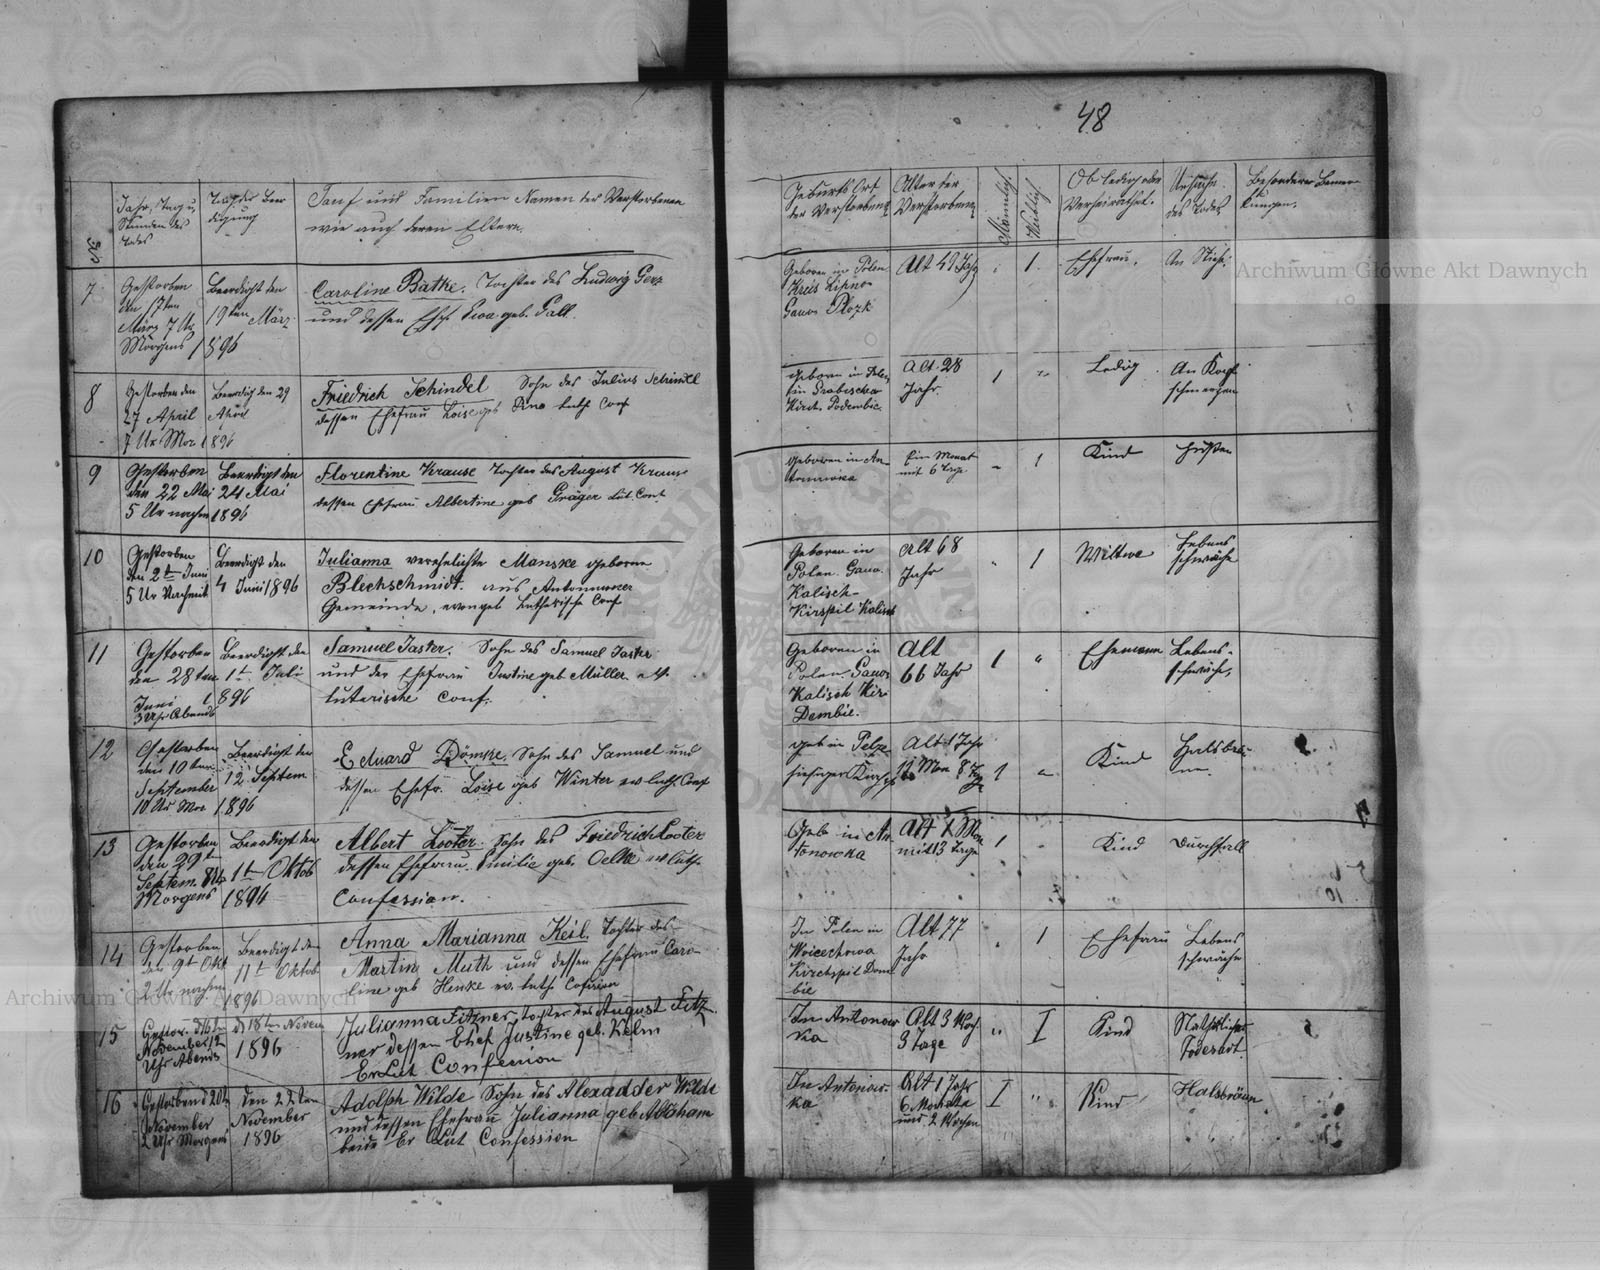 48
No
Jahr, Tag u.
Stunden des
Todes
Tag der Beer
digung
Tauf und Familien Namen der Verstorbenen
wie auch deren Eltern.
Geburts Ort
der Verstorbenen
Alter der
Verstorbenen
Männlich
Weiblich
Ob ledig oder
Verheirathet.
Ursache
des Todes
Besonderer Bemer
kungen.
7
Gestorben
den 17ten
März 7 Ur
Morgens 1896
Beerdigt den
19ten März
Caroline Bathe. Tochter des Ludwig
und dessen Ehefr geb. Gall.
Geboren in Polen
Kreis Lipno
Gouv Plozk
Alt 49 Jahr
1
Ehefrau.
An
8
Gestorben den
27 April
7 Ur Mor 1896
Beerdig den 29
April
Friedrich Schindel Sohn des Julius Schindel
dessen Ehefrau Loise geb luth Conf
Geboren in Polen
in Grabischka
Kirch. Podembie
Alt 28
Jahr.
1
"
Ledig
An Kopf
schmerzen
9
Gestorben
den 22 Mai
5 Ur nachm 1896
Beerdigt den
24 Mai
Florentine Krause Tochter des August Krause
dessen Ehefrau Albertine geb Gräger Lut. Conf
Geboren in An
tonowka
Ein Monat
mit 6 Tage
"
1
Kind
Husten
10
Gestorben
den 2ten Juni
5 Ur Nachmit
Beerdigt den
4 Juni 1896
Julianna verehelichte Manske geborne
Blechschmidt. aus Antonuwcer
Gemeinde, evangel Lutherische Conf
Geboren in
Polen. Gouv.
Kalisch
Kirspil Kalisch
Alt 68
Jahr
"
1
Wittwe
Lebens
schwäche
11
Gestorben
den 28ten
Juni 1896
3 Uhr Abends
Beerdight den
1t Juli
Samuel Jaster. Sohn des Samuel Jaster
und der Ehefrau Justine geb Müller
luterische Conf.
Geboren in
Polen. Gouv
Kalisch Kir
Dembie.
Alt
66 Jahr
1
"
Ehemann
Lebens-
schwäche,
12
Gestorben
den 10ten
September
10 Ur Mor 1896
Beerdigt den
12 Septem
Eduard Dömke. Sohn des Samuel und
dessen Ehefr. Loise geb Winter ev luth. Conf
Geb in
hiesiger
Alt 1 Jahr
11 Mon 8 Tage
1
"
Kind
Halsbräu-
ne.
13
Gestorben
den 29t
Septem. 8 Ur
Morgens
Beerdigt den
1t Oktob
1896
Albert Looter Sohn des Friedrich Looter
dessen Ehefrau. Emilie geb. Oelke ev luth.
Confession.
Geb in An
tonowka
Alt 1 Mon
mit 13 Tage
1
"
Kind
Durchfall
14
Gestorben
den 9t Okt
2 Ur nachm
Beerdigt den
11t Oktob
1896
Anna Marianna Keil. Tochter des
Martin Muth und dessen Ehefrau Caro-
line geb Henke ev. luth Cofession
In Polen in
Woicechowa
Kirchspil Dem
bie
Alt 77
Jahr
"
1
Ehefrau
Lebens
schwäche
15
Gestor. d 16t
November 12
Uhr Abends
d 18t Novem
1896
Julianna Fitzner. Tochter des August Fitz-
ner dessen Ehef Justine geb. Kelm
Ev Lut Confession
In Antonow
ka
Alt 3 Woch
3 Tage
"
I
Kind
Natürlicher
Todesart
16
Gestorben d 20t
November
2 Uhr Morgens
den 22ten
November
1896
Adolph Wilde Sohn des Alexadder Wilde
und dessen Ehefrau Julianna geb Abraham
beide Ev Lut Confession
In Antonow-
ka
Alt 1 Jahr
6 Monate
und 2 Wochen
I
"
Kind
Halsbräun
Archiwum Główne Akt Dawnych
Archiwum Główne Akt Dawnych